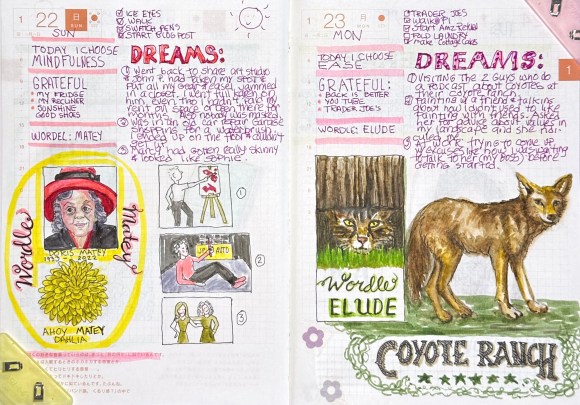 1
22 日
SUN
SUN
ICE EYES
WALK
SWATCH PENS
START BLOG POST
TODAY I CHOOSE
MINDFULNESS
GRATEFUL
MY FRIDGE
MY RECLINER
SUNSHINE
GOOD SHOES
WORDLE: MATEY
DREAMS:
① Went back to share art studio
& John F. had taken my space.
Put all my gear & easel, jammed
in a closet. I went full Karen on
him. Even tho I hadn't paid my
rent or been there for
months. Also nobody was masked.
② Was in an old car repair garage
shopping for a used
ended up on the floor & couldn't
get up.
③ Patty J. had gotten really skinny
& looked like Sophie.
Wordle
Matey
DORIS MATEY
2022
AHOY MATEY
DAHLIA
①
②
③
AUTO
1
23 月
MON
MON
TRADER JOES
WALK @ P1
FOLD LAUNDRY
make Cottage Cakes
TODAY I CHOOSE
EASE
GRATEFUL:
BACK IS BETTER
YOU TUBE
TRADER JOES
WORDLE: ELUDE
DREAMS:
① Visiting the 2 guys who do
a podcast about coyotes at
their coyote ranch.
② Painting w/ a friend & talking
about how I didn't used to like
painting with friends. Asked
her for advice about values in
my landscape and she ridi-
culed me.
③ At work trying to come up
w/ excuses like how I was waiting
to talk to her (my boss) before
getting started.
Wordle
ELUDE
COYOTE RANCH
1